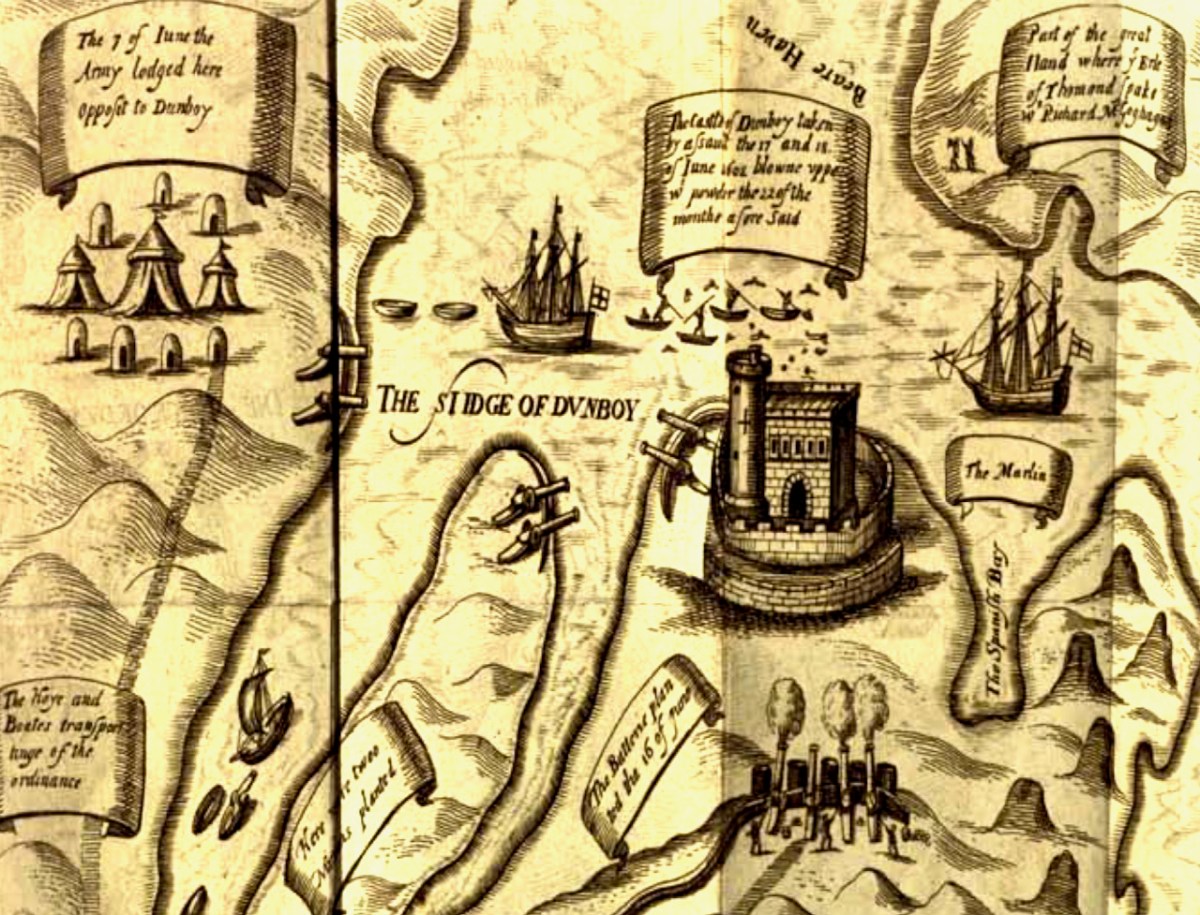 The 7 of Iune the
Army lodged here
Opposit to Dunboy
Beare Haven
Part of the great
Iland where ye Erle
of Thomond spake
wt Richard
The Castle of Dunboy taken
by assault the 17 and 18.
of Iune 1602 blowne uppe
wt powder the 22 of the
monthe afore Said
THE SIIDGE OF DVNBOY
The Marlin
The Spanish Bay
The Hoye and
Boates transpor
tinge of the
ordinance
Here two
planted
The Batterie plan
ted the 16 of